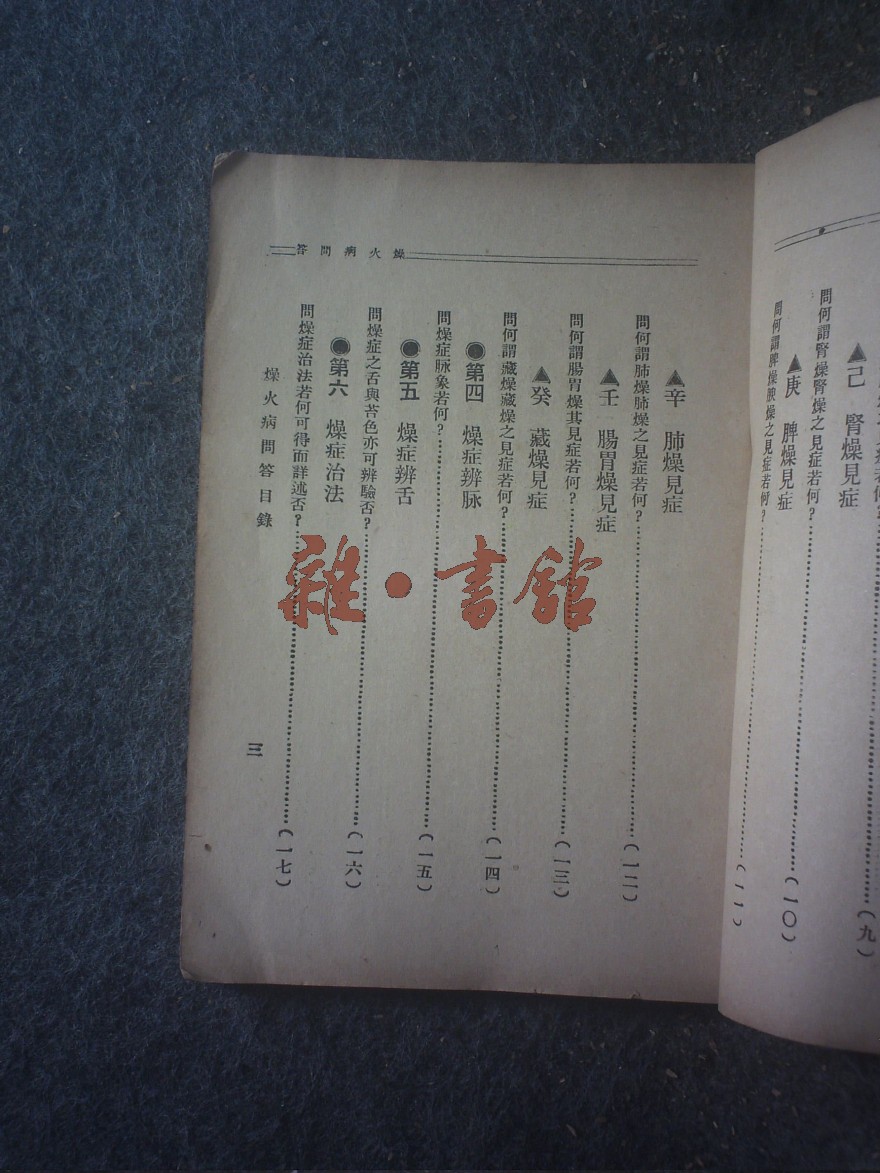 ▲己　腎燥見症
問何謂腎燥腎燥之見症若何?
(九)
▲庚　脾燥見症
(一〇)
問何謂脾燥脾燥之見症若何?
(一一)
燥火病問答
▲辛　肺燥見症
問何謂肺燥肺燥之見症若何?
(一二)
▲壬　腸胃燥見症
問何謂腸胃燥其見症若何?
(一三)
▲癸　藏燥見症
問何謂藏燥藏燥之見症若何?
(一四)
●第四　燥症辨脉
問燥症脉象若何?
(一五)
●第五　燥症辨舌
問燥症之舌與苔色亦可辨驗否?
(一六)
●第六　燥症治法
問燥症治法若何可得而詳述否?
(一七)
燥火病問答目錄
三
雜·書館